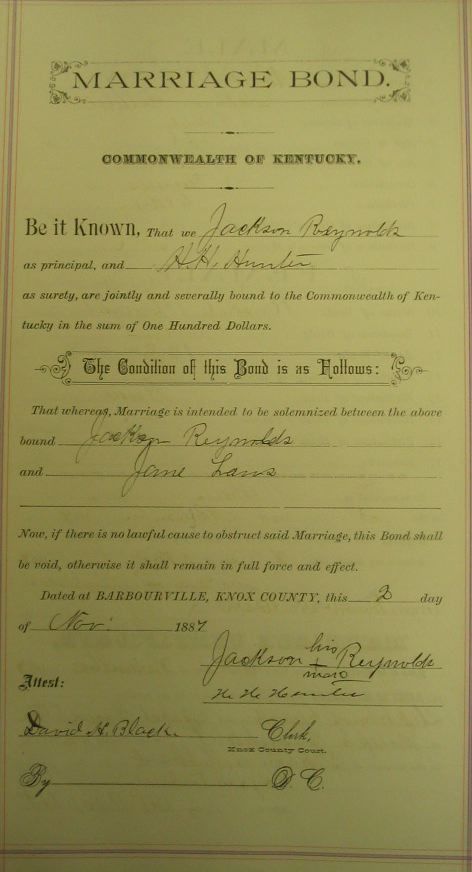 MARRIAGE BOND.
COMMONWEALTH OF KENTUCKY.
Be it Known, That we Jackson Reynolds
as principal, and H. H. Hunter
as surety, are jointly and severally bound to the Commonwealth of Ken-
tucky in the sum of One Hundred Dollars.
The Condition of this Bond is as Follows:
That whereas, Marriage is intended to be solemnized between the above
bound Jackson Reynolds
and Jane Laws
Now, if there is no lawful cause to obstruct said Marriage, this Bond shall
be void, otherwise it shall remain in full force and effect.
Dated at BARBOURVILLE, KNOX COUNTY, this 2 day
of Nov. 1887
Jackson his + mark Reynolds
Attest: H H Hunter
David H. Black Clerk,
Knox County Court.
By D. C.